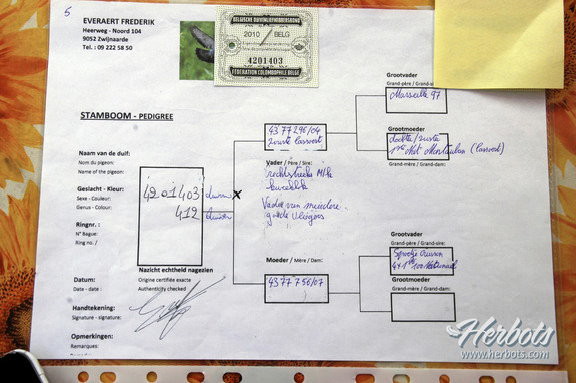 5
EVERAERT FREDERIK
Heerweg - Noord 104
9052 Zwijnaarde
Tel. : 09 222 58 50
BELGISCHE DUIVENLIEFHEBBERSBOND
2010 BELG
4201403
FEDERATION COLOMBOPHILE BELGE
STAMBOOM - PEDIGREE
Naam van de duif:
Nom du pigeon:
Name of the pigeon:
Geslacht - Kleur:
Sexe - Couleur:
Genus - Colour:
4201403
412
Ringnr. :
N° Bague:
Ring no. /
Nazicht echtheid nagezien
Origine certifiée exacte
Authenticity checked
Datum:
Date - date:
Handtekening:
Signature - signature:
Opmerkingen:
Remarques:
4377296/04
Vader / Père / Sire:
rechtstreeks
Vader van meerdere
goede vliegers
Moeder / Mère / Dam:
4377756/07
Grootvader
Grand-père / Grand-sire:
Marseille 97
Grootmoeder
Grand-mère / Grand-dam:
Grootvader
Grand-père / Grand-sire:
Grootmoeder
Grand-mère / Grand-dam:
Herbots
www.herbots.com